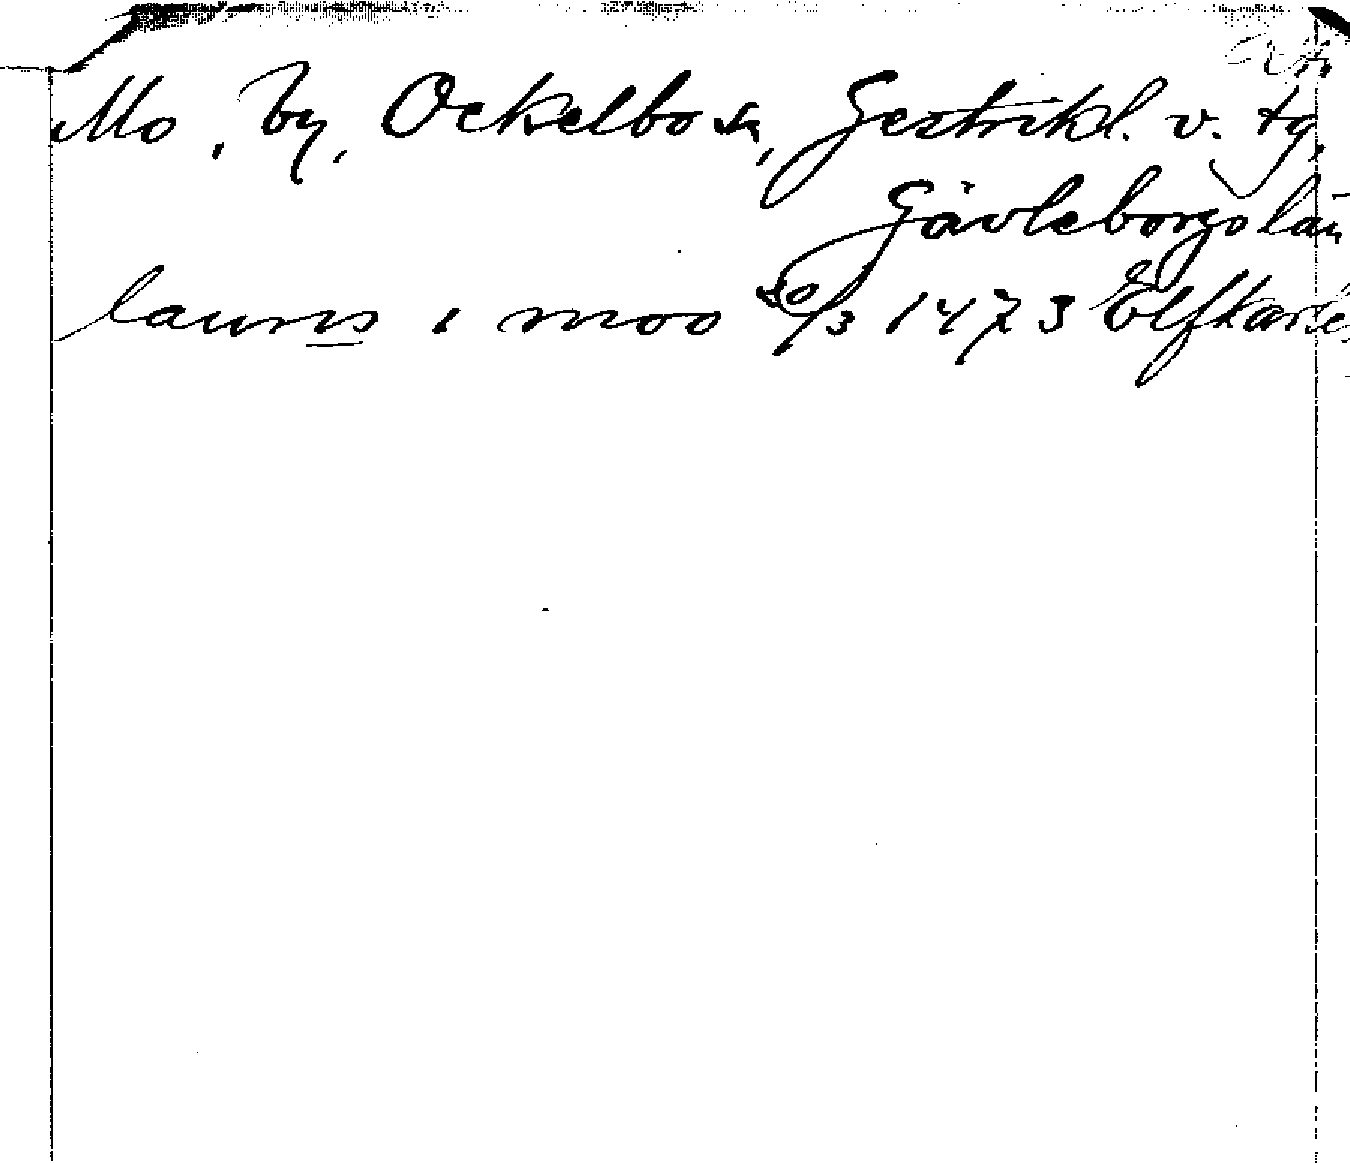 Mo, by, Ockelbo sn, Gestrikl. v. tg,
Gävleborgs län
laurns i moo 20/3 1473 Elfkarle